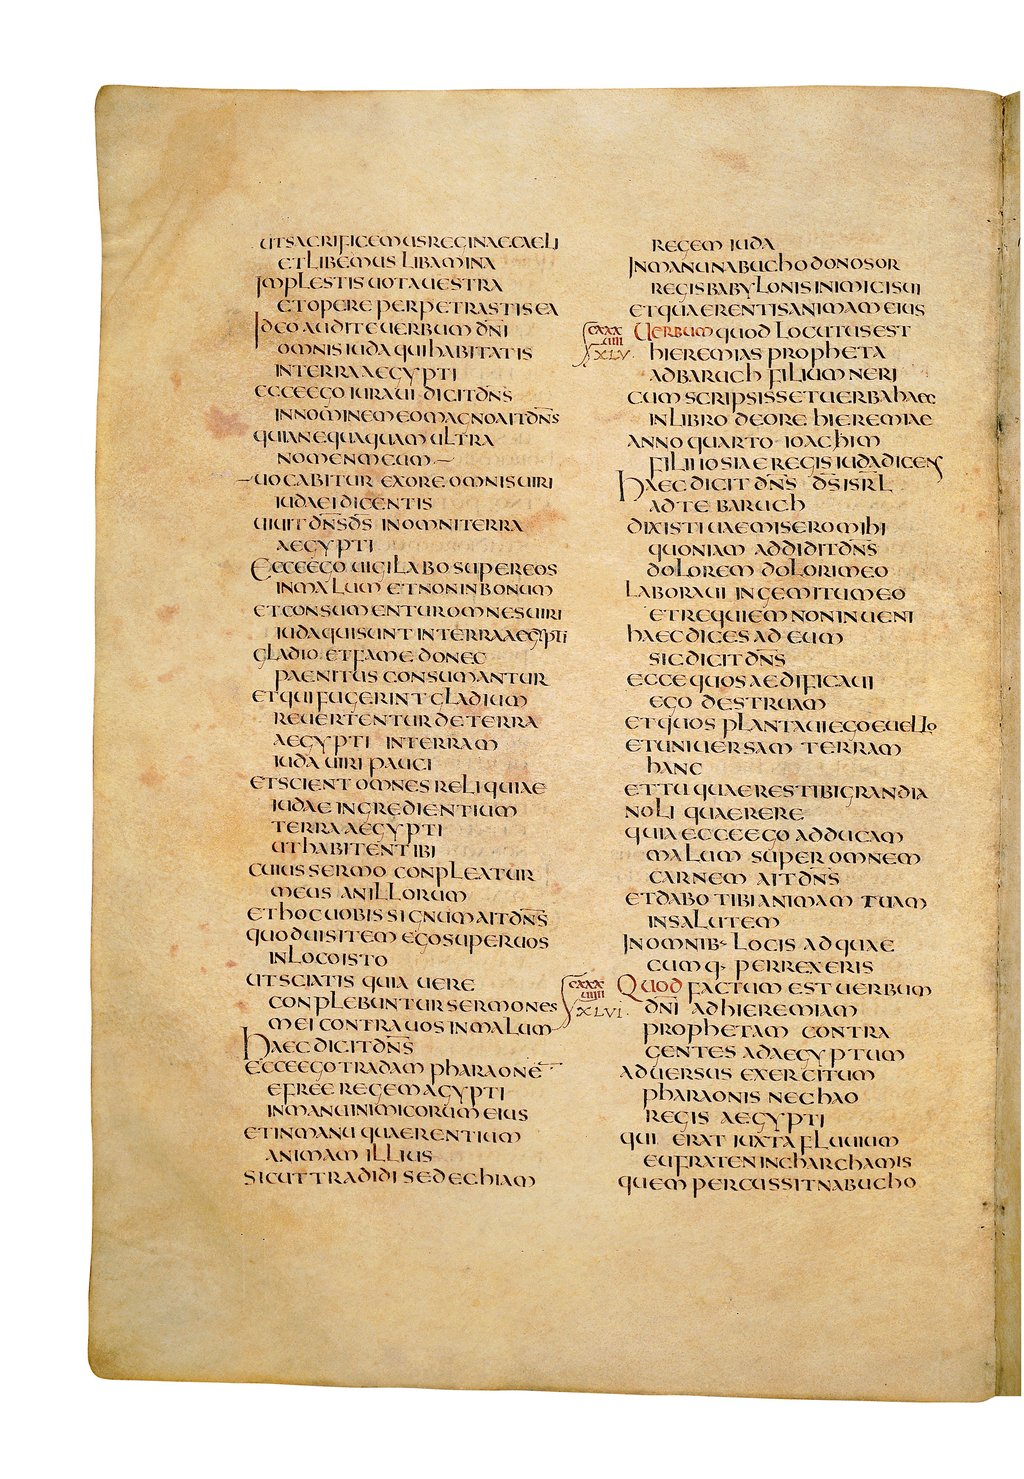 UTSACRIFICEMUSREGINAECAELI
ETLIBEMUS LIBAMINA
IMPLESTIS UOTAUESTRA
ETOPERE PERPETRASTIS EA
IDEO AUDITE UERBUM DN̅I
OMNIS IUDA QUI HABITATIS
IN TERRA AEGYPTI
ECCE EGO IURAUI DICIT DN̅S
IN NOMINE MEO MAGNO AIT DN̅S
QUIA NEQUAQUAM ULTRA
NOMEN MEUM
UOCABITUR EX ORE OMNIS UIRI
IUDAEI DICENTIS
UIUIT DN̅S D̅S IN OMNI TERRA
AEGYPTI
ECCE EGO UIGILABO SUPER EOS
IN MALUM ET NON IN BONUM
ET CONSUMENTUR OMNES UIRI
IUDA QUI SUNT IN TERRA AEGYPTI
GLADIO ET FAME DONEC
PAENITUS CONSUMANTUR
ET QUI FUGERINT GLADIUM
REUERTENTUR DE TERRA
AEGYPTI IN TERRAM
IUDA UIRI PAUCI
ET SCIENT OMNES RELIQUIAE
IUDAE INGREDIENTIUM
TERRA AEGYPTI
UT HABITENT IBI
CUIUS SERMO CONPLEATUR
MEUS AN ILLORUM
ET HOC UOBIS SIGNUM AIT DN̅S
QUOD UISITEM EGO SUPER UOS
IN LOCO ISTO
UT SCIATIS QUIA UERE
CONPLEBUNTUR SERMONES
MEI CONTRA UOS IN MALUM
HAEC DICIT DN̅S
ECCE EGO TRADAM PHARAONE̅
EFREE REGEM AGYPTI
IN MANU INIMICORUM EIUS
ET IN MANU QUAERENTIUM
ANIMAM ILLIUS
SICUT TRADIDI SEDECHIAM
REGEM IUDA
IN MANU NABUCHODONOSOR
REGIS BABYLONIS INIMICI SUI
ET QUAERENTIS ANIMAM EIUS
CXXXIIII XLV UERBUM QUOD LOCUTUS EST
HIEREMIAS PROPHETA
AD BARUCH FILIUM NERI
CUM SCRIPSISSET UERBA HAEC
IN LIBRO DE ORE HIEREMIAE
ANNO QUARTO IOACHIM
FILII IOSIAE REGIS IUDA DICENS
HAEC DICIT DN̅S D̅S ISR̅L
AD TE BARUCH
DIXISTI UAE MISERO MIHI
QUONIAM ADDIDIT DN̅S
DOLOREM DOLORI MEO
LABORAUI IN GEMITU MEO
ET REQUIEM NON INUENI
HAEC DICES AD EUM
SIC DICIT DN̅S
ECCE QUOS AEDIFICAUI
EGO DESTRUAM
ET QUOS PLANTAUI EGO EUELLO
ET UNIUERSAM TERRAM
HANC
ET TU QUAERES TIBI GRANDIA
NOLI QUAERERE
QUIA ECCE EGO ADDUCAM
MALUM SUPER OMNEM
CARNEM AIT DN̅S
ET DABO TIBI ANIMAM TUAM
IN SALUTEM
IN OMNIB· LOCIS AD QUAE
CUMQ· PERREXERIS
CXXXIIIII XLVI QUOD FACTUM EST UERBUM
DN̅I AD HIEREMIAM
PROPHETAM CONTRA
GENTES AD AEGYPTUM
ADUERSUS EXERCITUM
PHARAONIS NECHAO
REGIS AEGYPTI
QUI ERAT IUXTA FLUUIUM
EUFRATEN IN CHARCHAMIS
QUEM PERCUSSIT NABUCHO